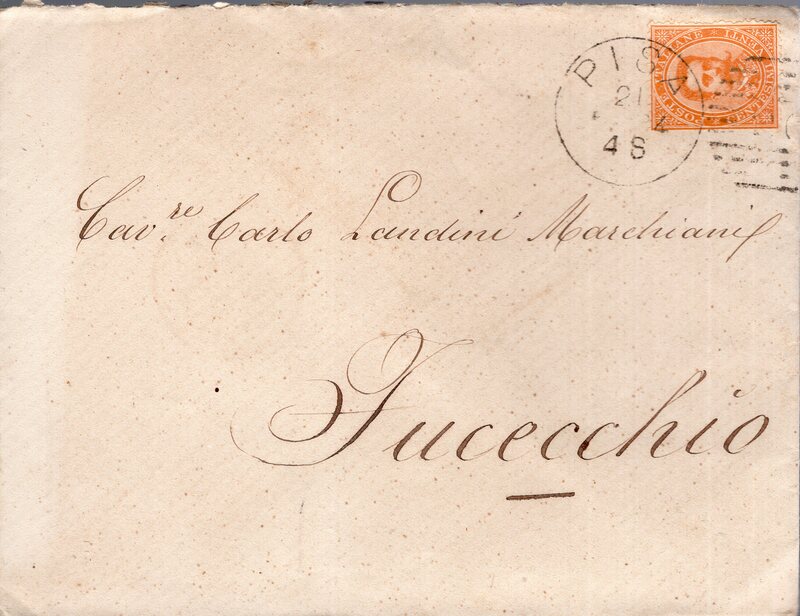 PISA
21
48
POSTE ITALIANE VENTI CENTESIMI
Cav.re Carlo Landini Marchiani
Fucecchio